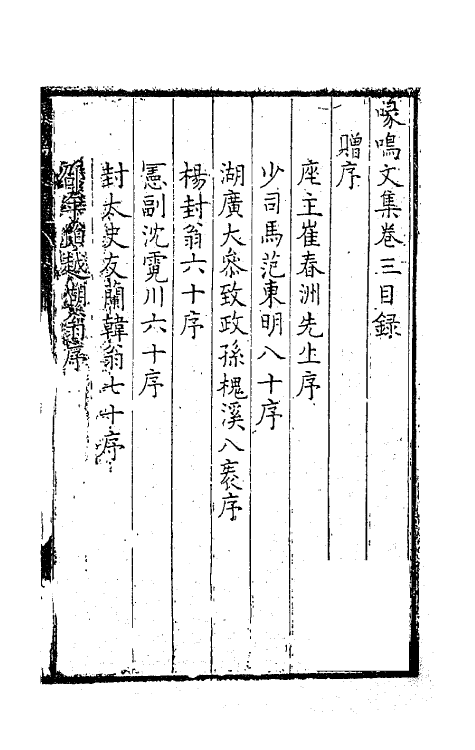 喙鳴文集卷三目録
贈序
座主崔春洲先生序
少司馬范東明八十序
湖廣大參致政孫槐溪八袠序
楊封翁六十序
憲副沈霓川六十序
封太史友蘭韓翁七十序
越湖序